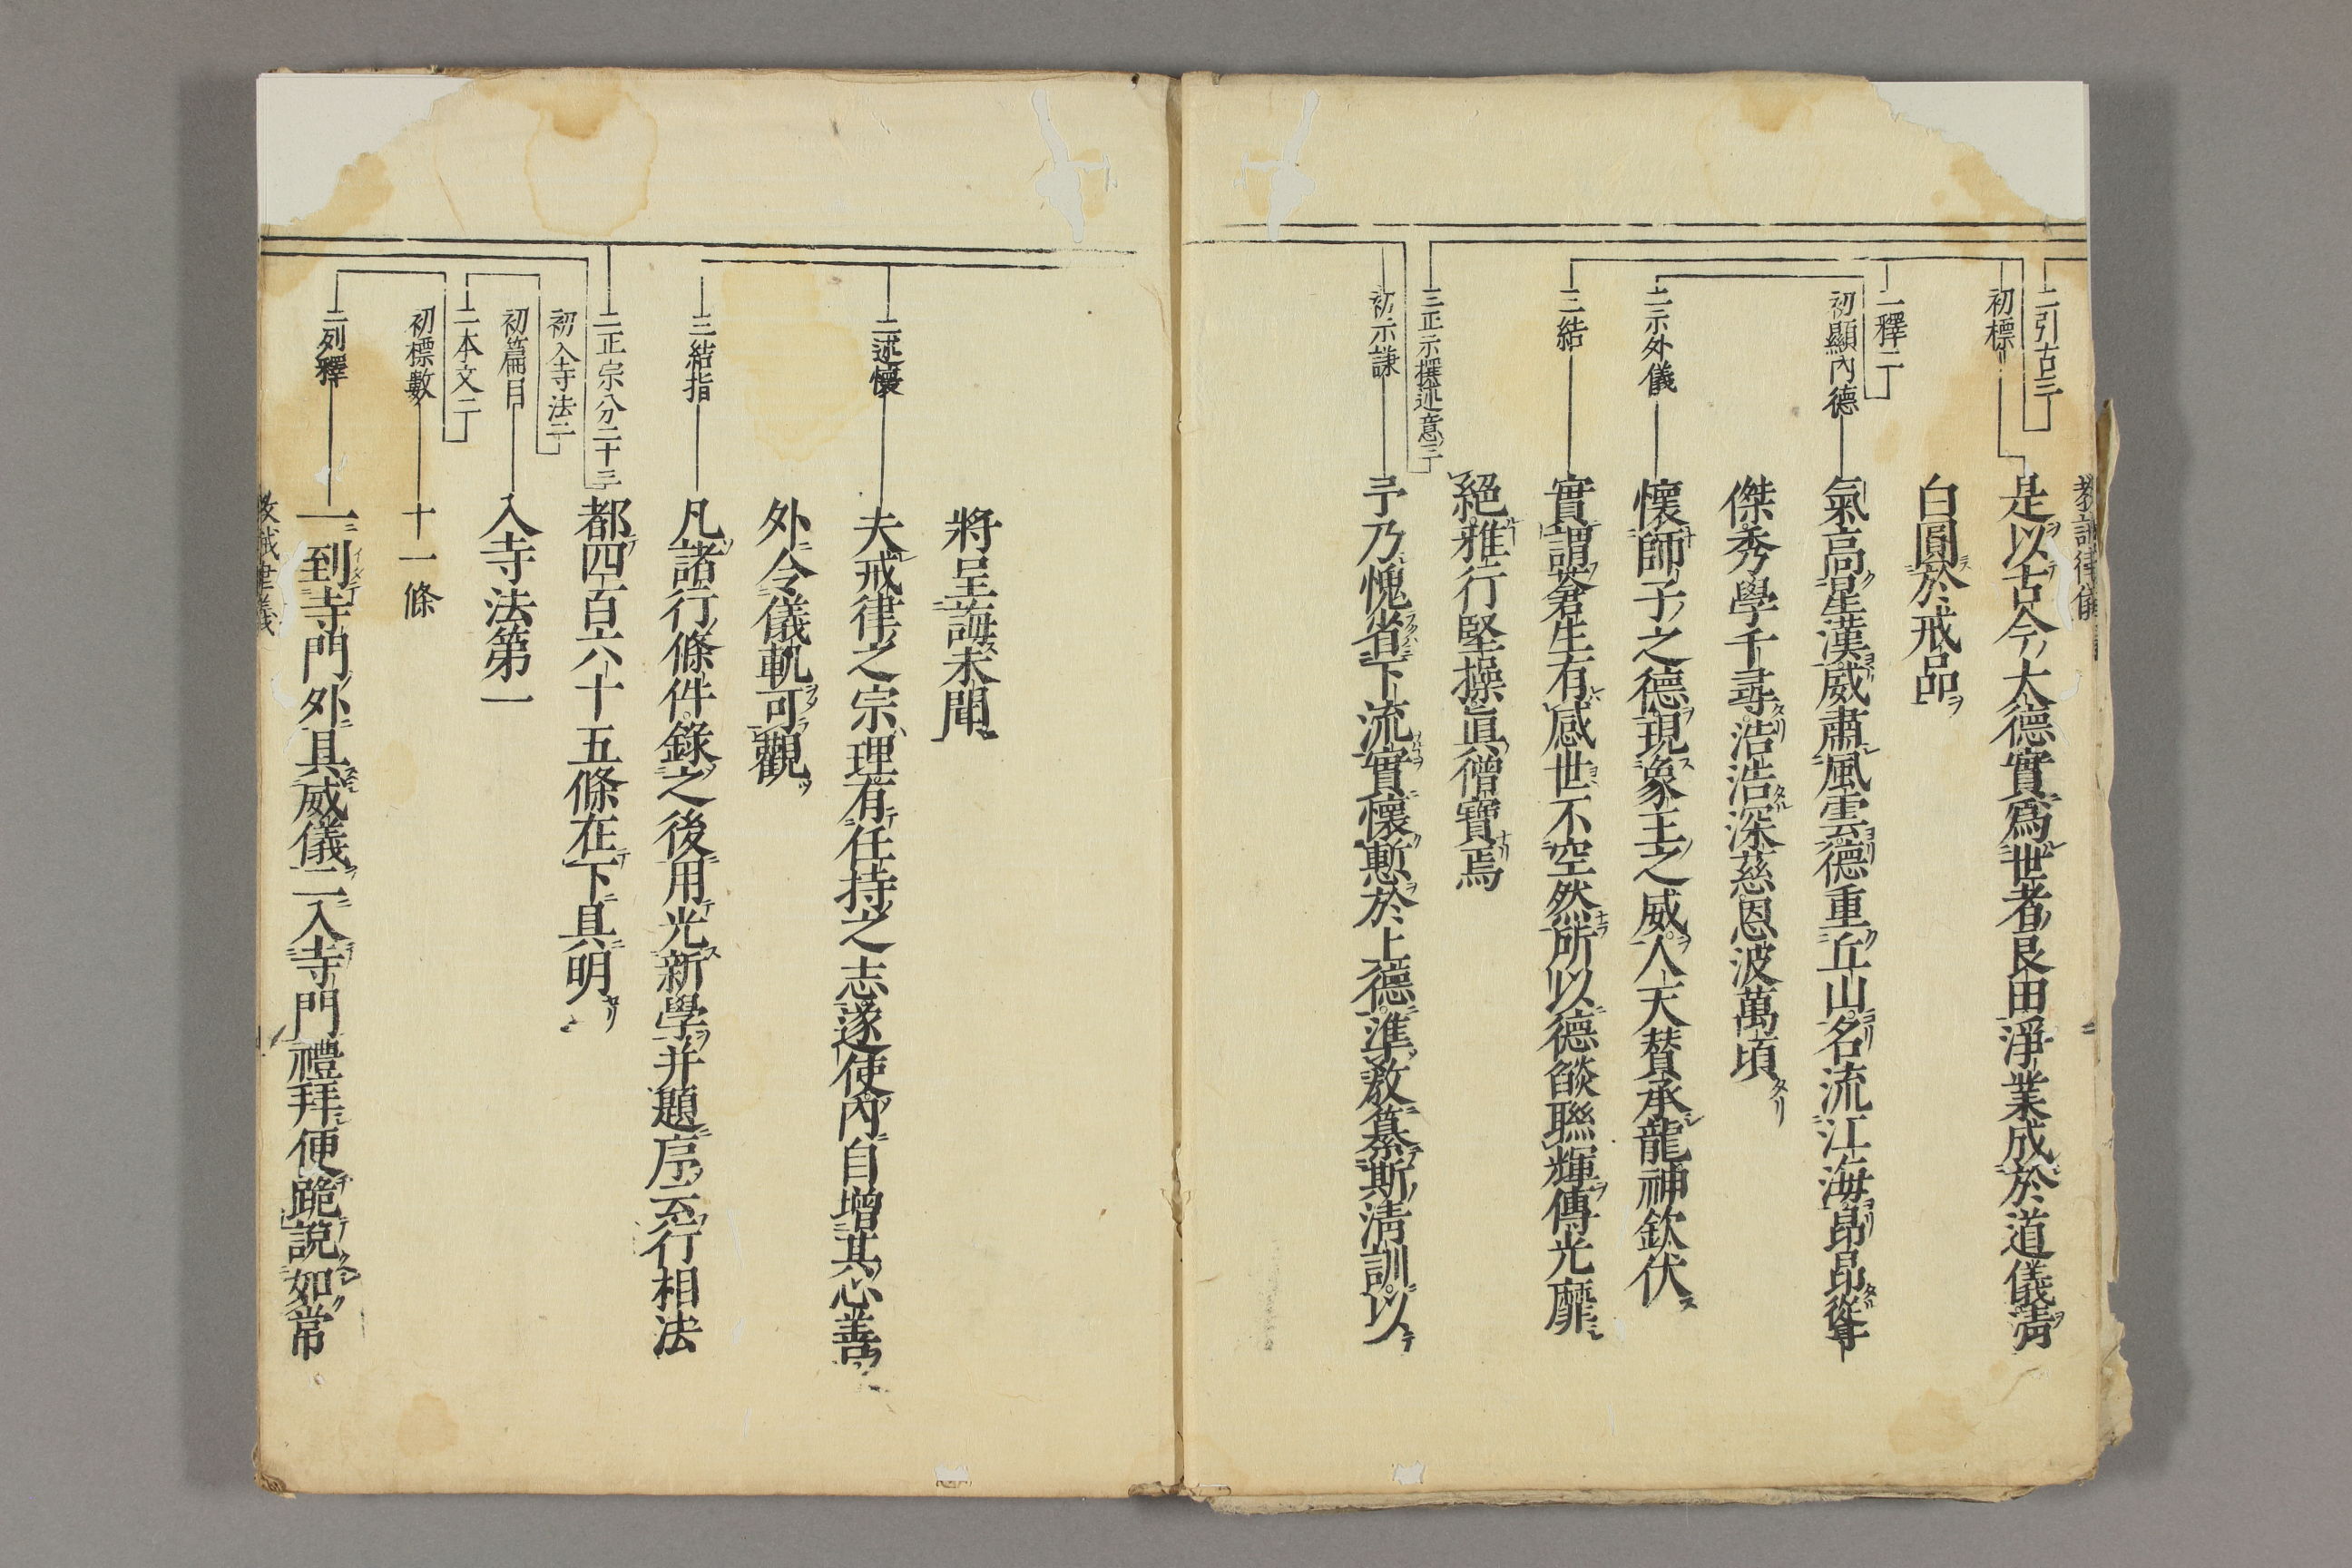 二引古三
初標
是以古今大德實爲世者良田淨業成於道儀淸
白圓於戒品
二釋二
初顯內德
氣高星漢威肅風雲德重丘山名流江海昂昂聳𡴎
傑秀學千尋浩浩深慈恩波萬頃
二示外儀
懷師子之德現象王之威人天賛承龍神欽伏
三結
實謂蒼生有感世不空然所以德𦦨聯輝傳光靡
絕雅行堅操眞僧寶焉
三正示撰述意三
初示謙
予乃愧省下流實懷慙於上德準敎纂斯淸訓以
將呈誨未聞
二述懷
夫戒律之宗理有任持之志遂使內自增其心善
外令儀軌可觀
三結指
凡諸行條件錄之後用光新學并題序云行相法
二正宗分二十三
都四百六十五條在下具明
初入寺法二
初篇目
入寺法第一
二本文二
初標數
十一條
二列釋
一到寺門外具威儀二入寺門禮拜便跪說如常